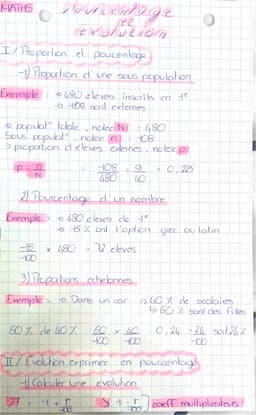 MATHS
Pourcentage
et
évolution
I/ Proportion et pourcentage
1) Proportion d'une sous population
Exemple : → 480 élèves inscrits en 1e
→ 108 sont externes
→ populat° totale, notée N : 480
Sous populat° notée n : 108
> proportion d'élèves externes, notée p
p = n/N 108/480 = 9/40 = 0,225
2) Pourcentage d'un nombre
Exemple : → 480 élèves de 1e
→ 15 % ont l'option grec ou latin
15/100 x 480 = 72 élèves
3) Proportions échelonnées
Exemple : → Dans un car → 60 % de scolaires
↳ 60 % sont des filles
60 % de 40 % 60/100 x 40/100 = 0,24 = 24/100 soit 24 %
II/ Evolution exprimée en pourcentage
1) Calculer une évolution
↗ = 1 + r/100 ↘ 1 - r/100 coeff multiplicateurs